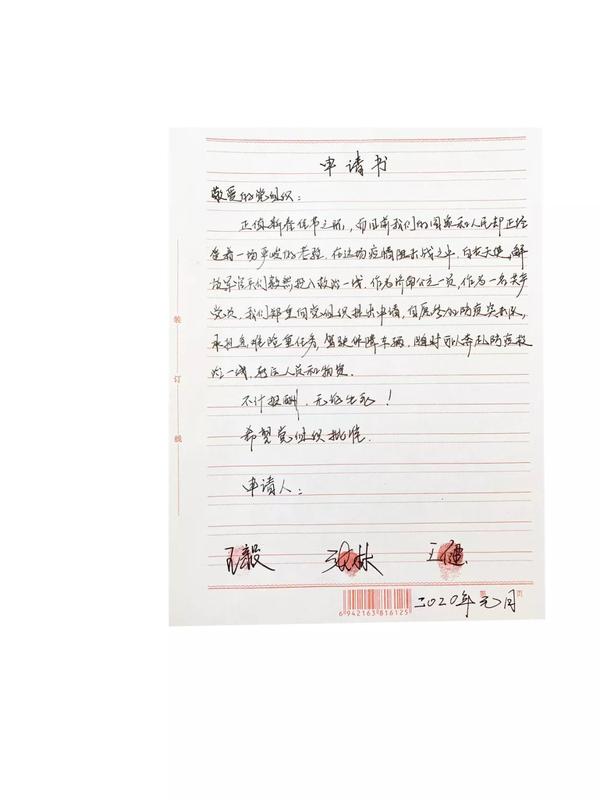 申请书
敬爱的党组织：
正值新春佳节之际，而目前我们的国家和人民却正经
受着一场严峻的考验。在这场疫情阻击战之中，白衣天使、解
放军官兵们毅然投入救治一线。作为济南公交一员，作为一名共产
党员，我们郑重向党组织提出申请，组成防疫突击队，
承担急难险重任务，驾驶保障车辆，随时可以奔赴防疫救
治一线，转运人员和物资。
不计报酬，无论生死！
希望党组织批准。
申请人：
王毅 林 王健
2020年元月
装
订
线
6 942163 816125
第 页